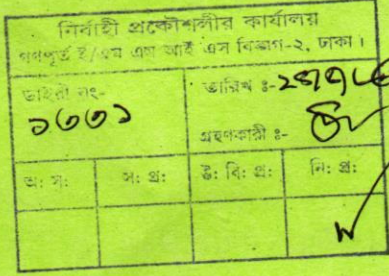 নির্বাহী প্রকৌশলীর কার্যালয়
গণপূর্ত ই/এম এম আই এস বিভাগ-২, ঢাকা।
ডাইরী নং-
তারিখ ঃ-
১৩৩১
গ্রহণকারী ঃ-
অ: স: স: প্র: উ: বি: প্র: নি: প্র: